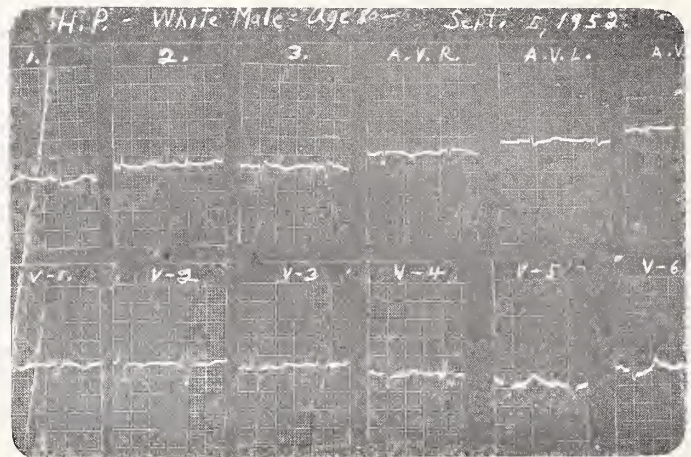 H. P. - White Male - Age 80 - Sept. 5, 1952
1. 2. 3. A. V. R. A. V. L. A. V.
V-1. V-2 V-3 V-4 V-5 V-6